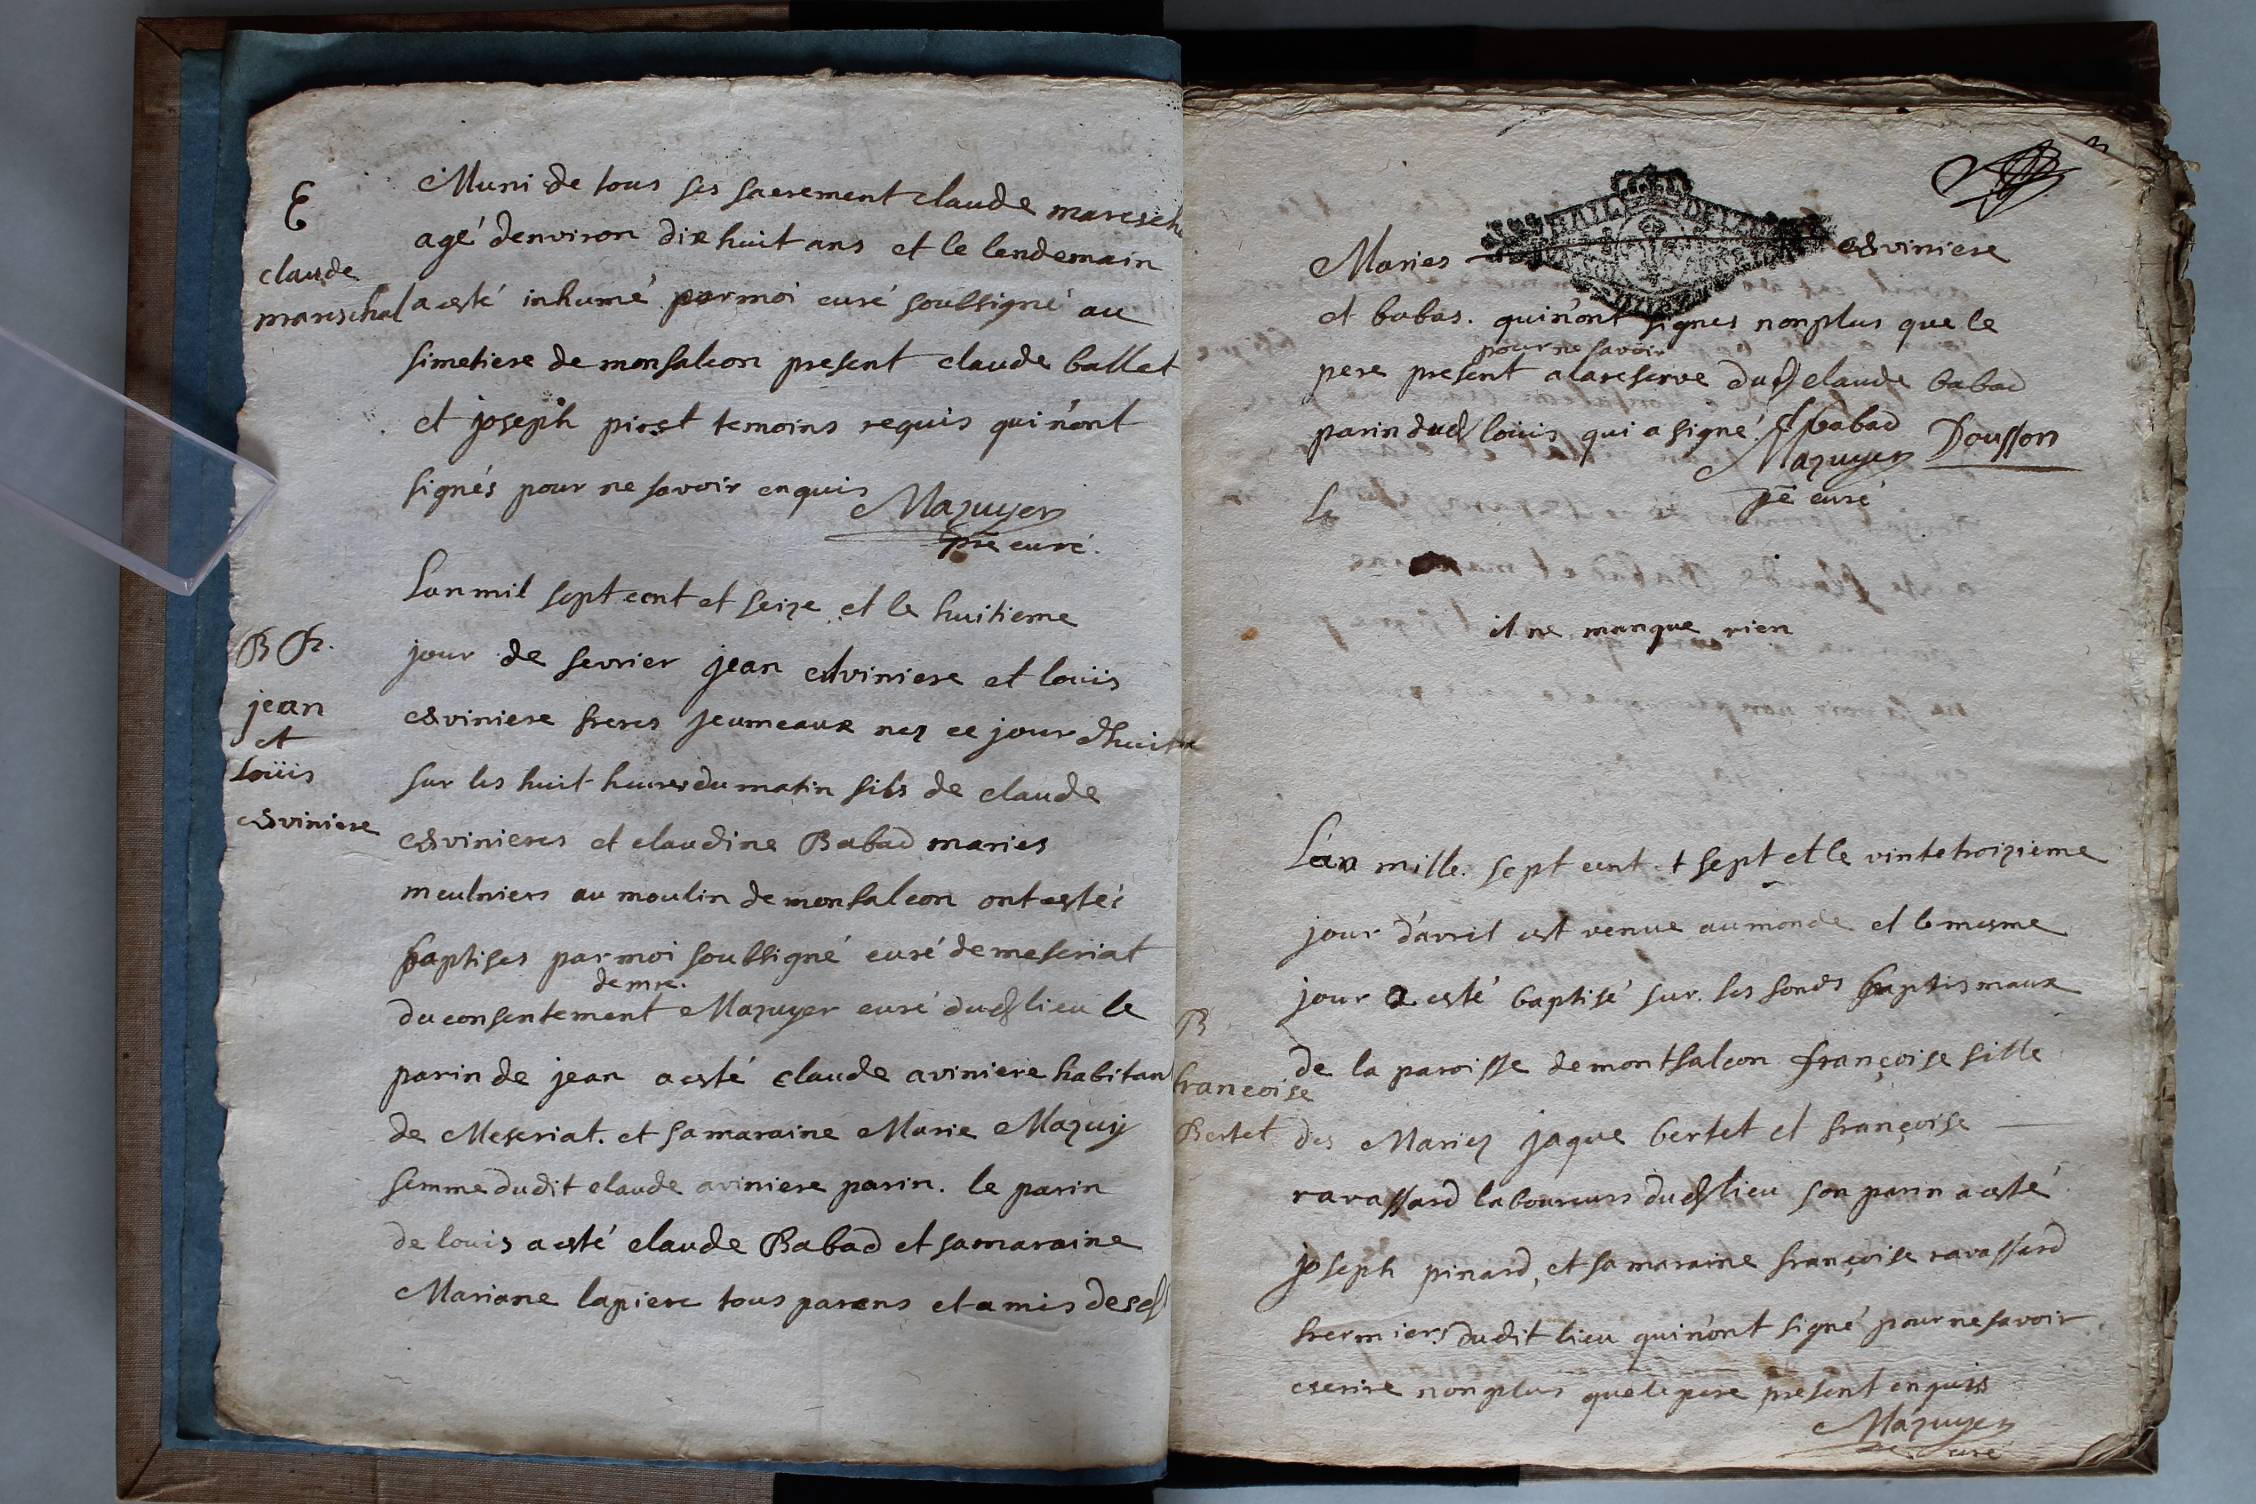 E
claude
mareschal
Muni de tous ses sacrement claude maresch
agé denviron dix huit ans et le lendemain
a esté inhumé par moi curé soubsigné au
simetiere de monfalcon present claude ballet
et joseph piret temoins requis qui n'ont
signés pour ne savoir enquis
Mazuyer
pre curé.
B
jean
et
Loüis
aviniere
Lan mil sept cent et seize et le huitieme
jour de fevrier jean aviniere et loüis
aviniere freres jeumeaux nez ce jour dhuit
sur les huit heures du matin fils de claude
avinieres et claudine Babad maries
meulniers au moulin de monfalcon ont estés
baptises par moi soubsigné curé de meseriat
de mre.
du consentement Mazuyer curé dud lieu le
parin de jean a esté claude aviniere habitant
de Meseriat. et sa maraine Marie Mazuy
femme dudit claude aviniere parin. le parin
de louis a esté claude Babad et sa maraine
Mariane lapiere tous parens et amis desd
3
Maries aviniere
et babas. qui n'ont signes nonplus que le
pour ne savoir
pere present a la reserve dud claude babad
parin dud loüis qui a signé. Babad Dousson
Mazuyer
pe curé
il ne manque rien
B
francoise
Bertet
L'an mille. sept cent et sept et le vintetroizieme
jour d'avril est venue au monde et le mesme
jour a esté baptisé sur les fonds baptismaux
de la paroisse de montfalcon françoise fille
des Mariez jaque bertet et françoise
ravassard laboureurs dud lieu son parin a esté
joseph pinard, et sa maraine françoise ravassard
frermiers dudit lieu qui n'ont signé pour ne savoir
escrire nonplus que le pere present enquis
Mazuyer
curé